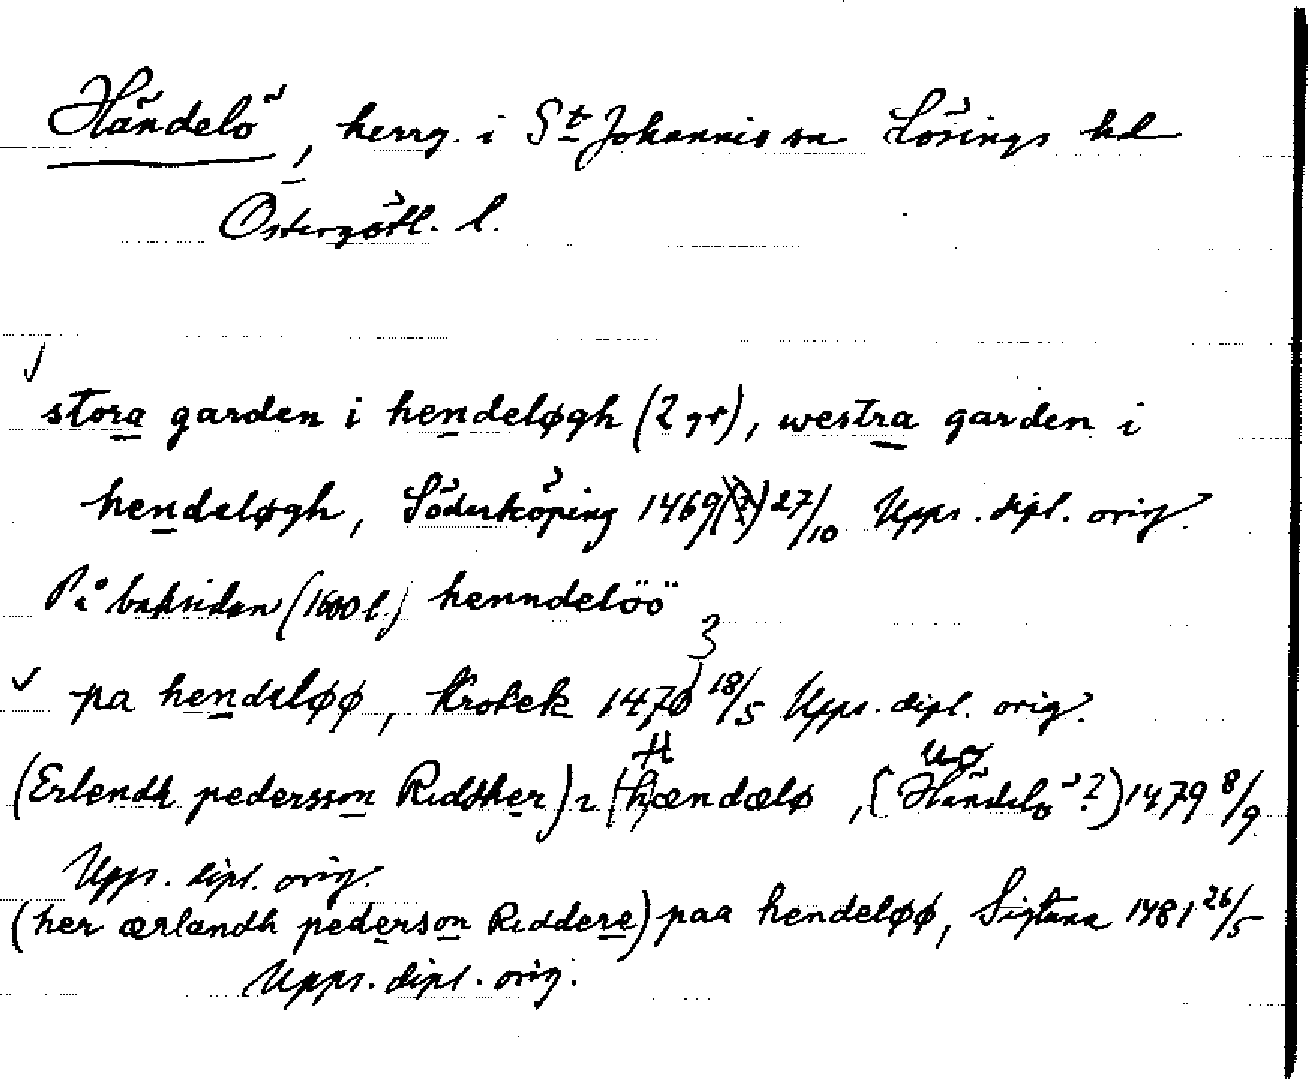 Händelö, herrg. i St Johannis sn Lösings hd
Östergötl. l.
stora garden i hendeløgh (2 gr), westra garden i
hendeløgh, Söderköping 1469(?) 27/10 Upps. dipl. orig.
På baksidan (1600 t.) henndelöö
3
pa hendeløø, Krokek 1470 18/5 Upps. dipl. orig.
(Erlendh pedersson Riddher) i hændælø, (Händelö?) 1479 8/9
Upps. dipl. orig.
(her ærlandh pederson Riddere) paa hendeløø, Sigtuna 1481 26/5
Upps. dipl. orig.